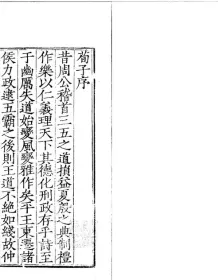 荀子序
昔周公稽首三五之道損益夏殷之典制禮
作樂以仁義理天下其德化刑政存乎詩至
于幽厲失道始變風變雅作矣平王東遷諸
侯力政逮五霸之後則王道不絕如綫故仲